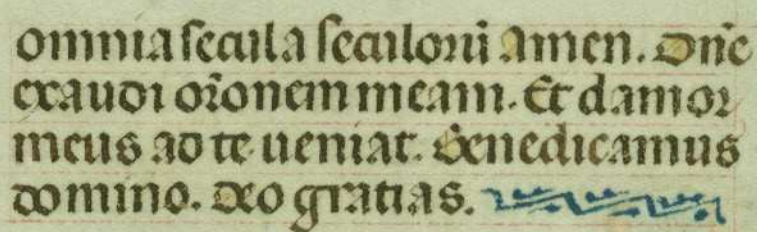 omnia secula seculorũ amen. Dñe
exaudi or̃onem meam. Et clamor
meus ad te veniat. Benedicamus
domino. deo gratias.